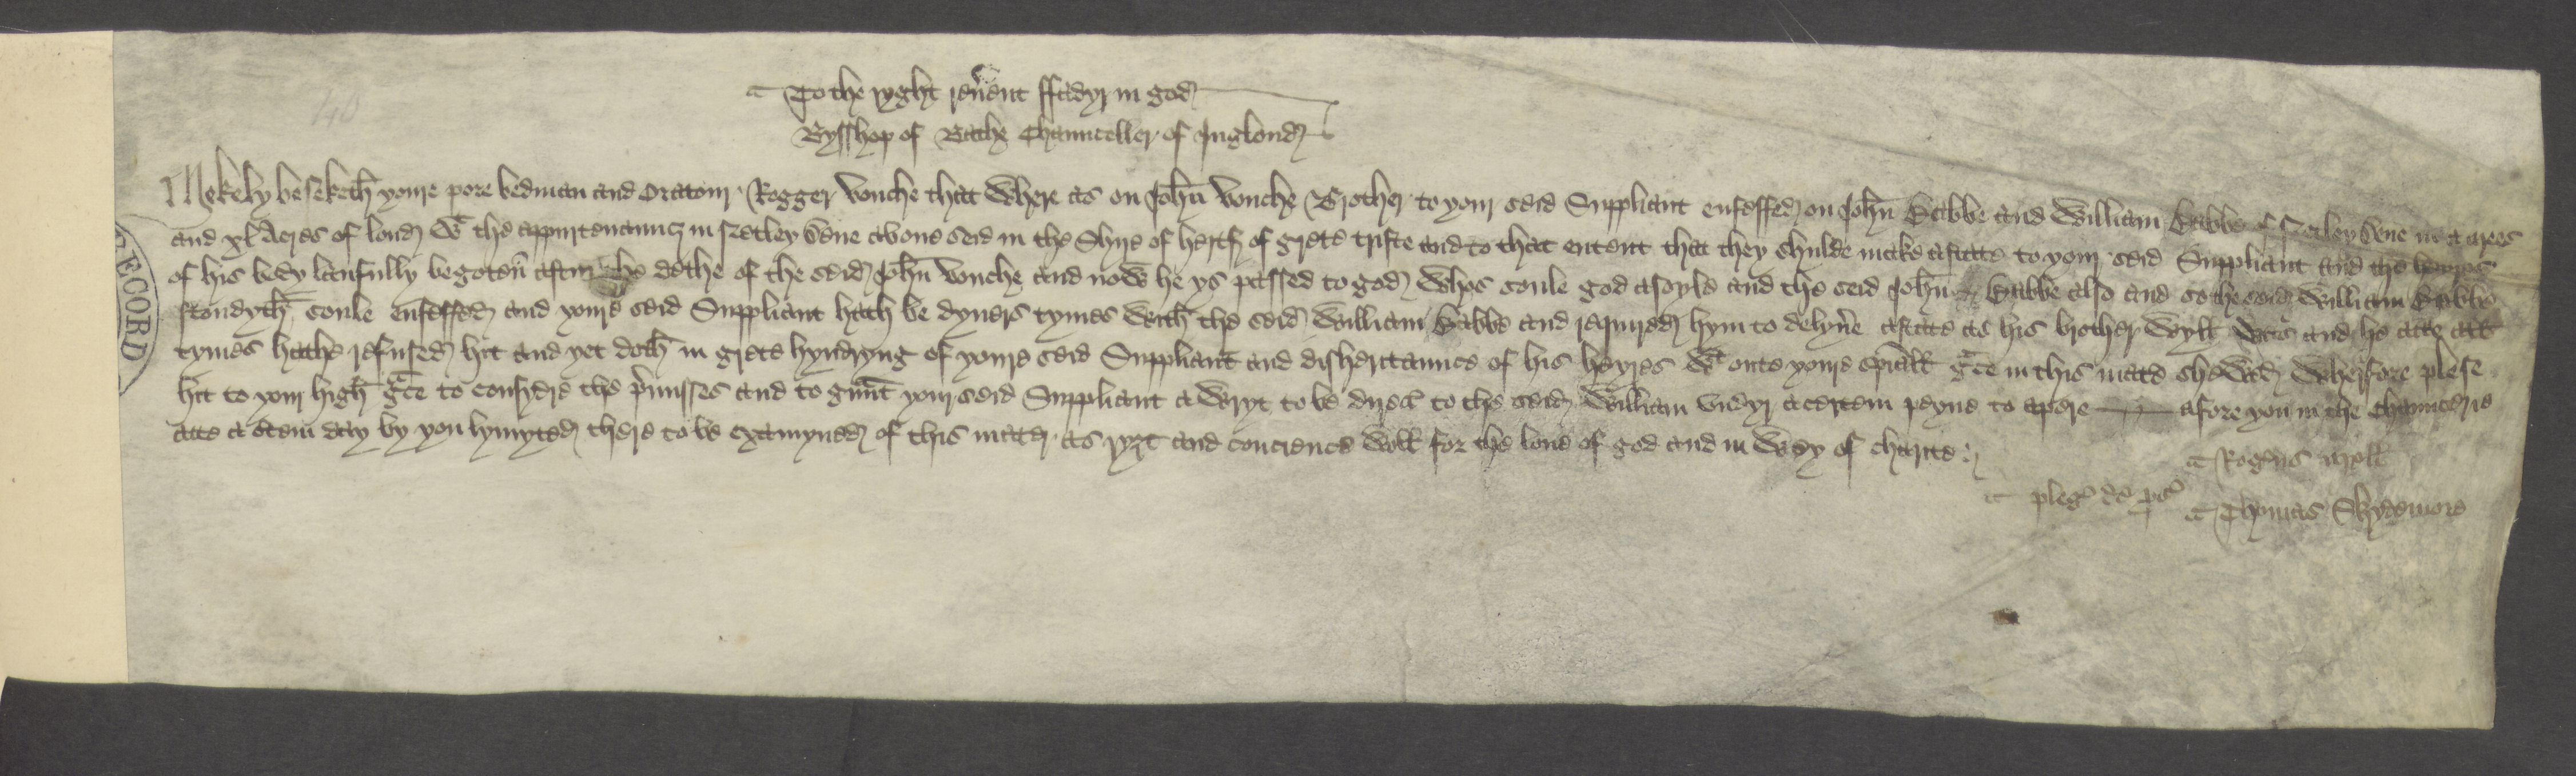 To the ryght reu'ent ffadyr in god
Bysshop of Bathe Chaunceller of Inglond
Mekely beseketh youre pore bedman and oratour Rogger vouche that where as on John vouche Brother to your seid Suppliant enfeffed on John Babbe and William Babbe of
and xl Acres of lond wt the appurtenauncz in above seid in the Shyre of hertf of grete triste and to that entent that they shulde make astate to your seid Suppliant and the heyres
of his body laufully begoten aftur the dethe of the seid John vouche and now he ys passed to god whos soule god asoyle and the seid John Babbe also and so the seid William Babbe
stondyth soule enfeffed and youre seid Suppliant hath be dyuers tymes with the seid William Babbe and required hym to delyu'e astate as his brother wyll was and he atte all
tymes hathe refused hit and yet doth in grete hyndryng of youre seid Suppliant and disheritaunce of his heyres wt oute youre sp'iall g'ce in this mate shewed Wherfore plese
hit to your high g'ce to consydre the p'misses and to g'unt your seid Suppliant a wryt to be direct to the seid William vndyr a certein peyne to apere afore you in the Chauncerie
atte a c'tein day by you lymyted there to be examyned of this mater as ryzt and concience woll for the loue of god and in wey of charite
Rogerus
pleg' de ps'
Thomas Skydemore
RECORD
140